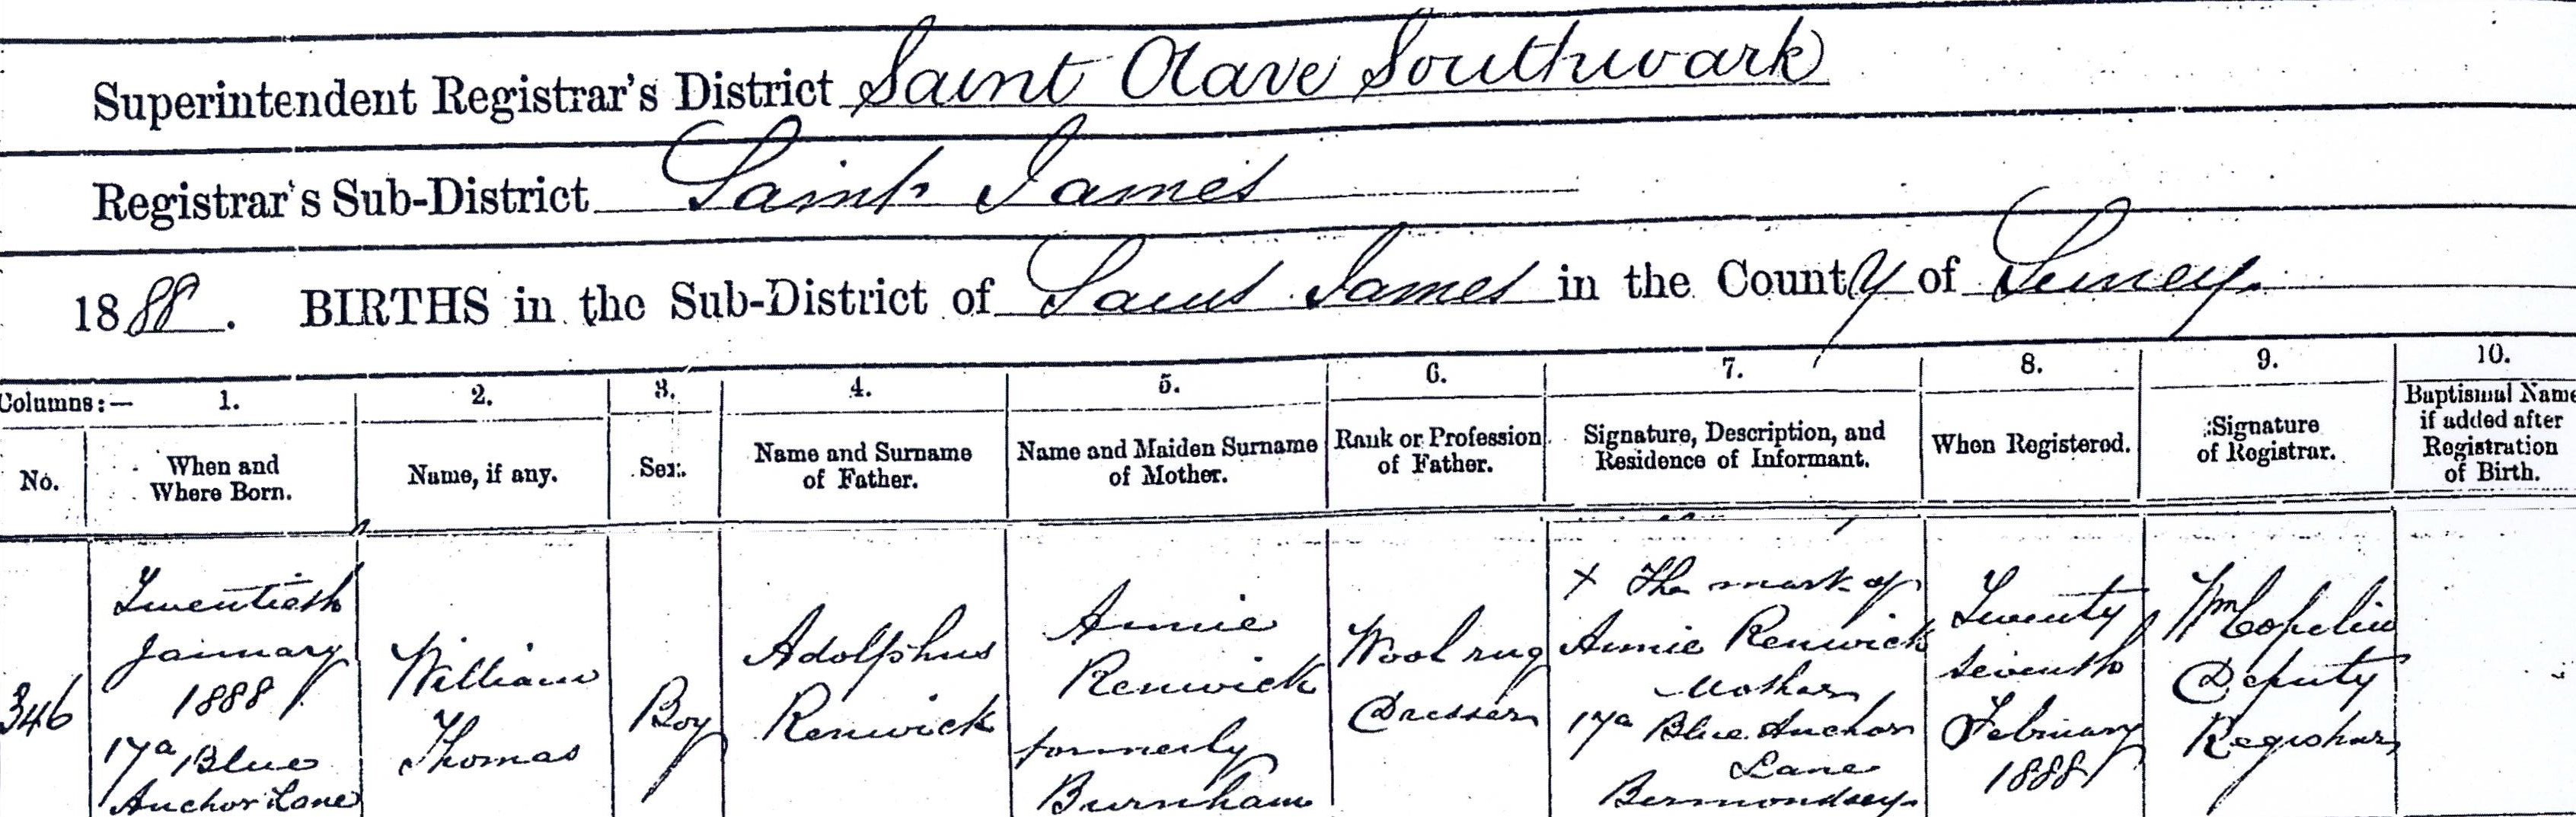 Superintendent Registrar's District Saint Olave Southwark
Registrar's Sub-District Saint James
1888. BIRTHS in the Sub-District of Saint James in the County of Surrey.
Columns:— 1. 2. 3. 4. 5. 6. 7. 8. 9. 10.
No.
When and
Where Born.
Name, if any.
Sex.
Name and Surname
of Father.
Name and Maiden Surname
of Mother.
Rank or Profession
of Father.
Signature, Description, and
Residence of Informant.
When Registered.
Signature
of Registrar.
Baptismal Name
if added after
Registration
of Birth.
346
Twentieth
January
1888
17a Blue
Anchor Lane
William
Thomas
Boy
Adolphus
Renwick
Annie
Renwick
formerly
Burnham
Wool rug
Dresser
X The mark of
Annie Renwick
Mother
17a Blue Anchor
Lane
Bermondsey
Twenty
seventh
February
1888
Wm Copelin
Deputy
Registrar